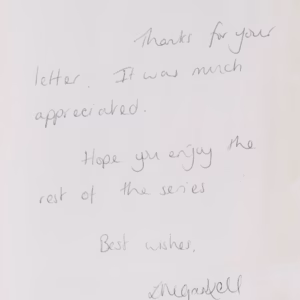 Thanks for your
letter. It was much
appreciated.
Hope you enjoy the
rest of the series
Best wishes,